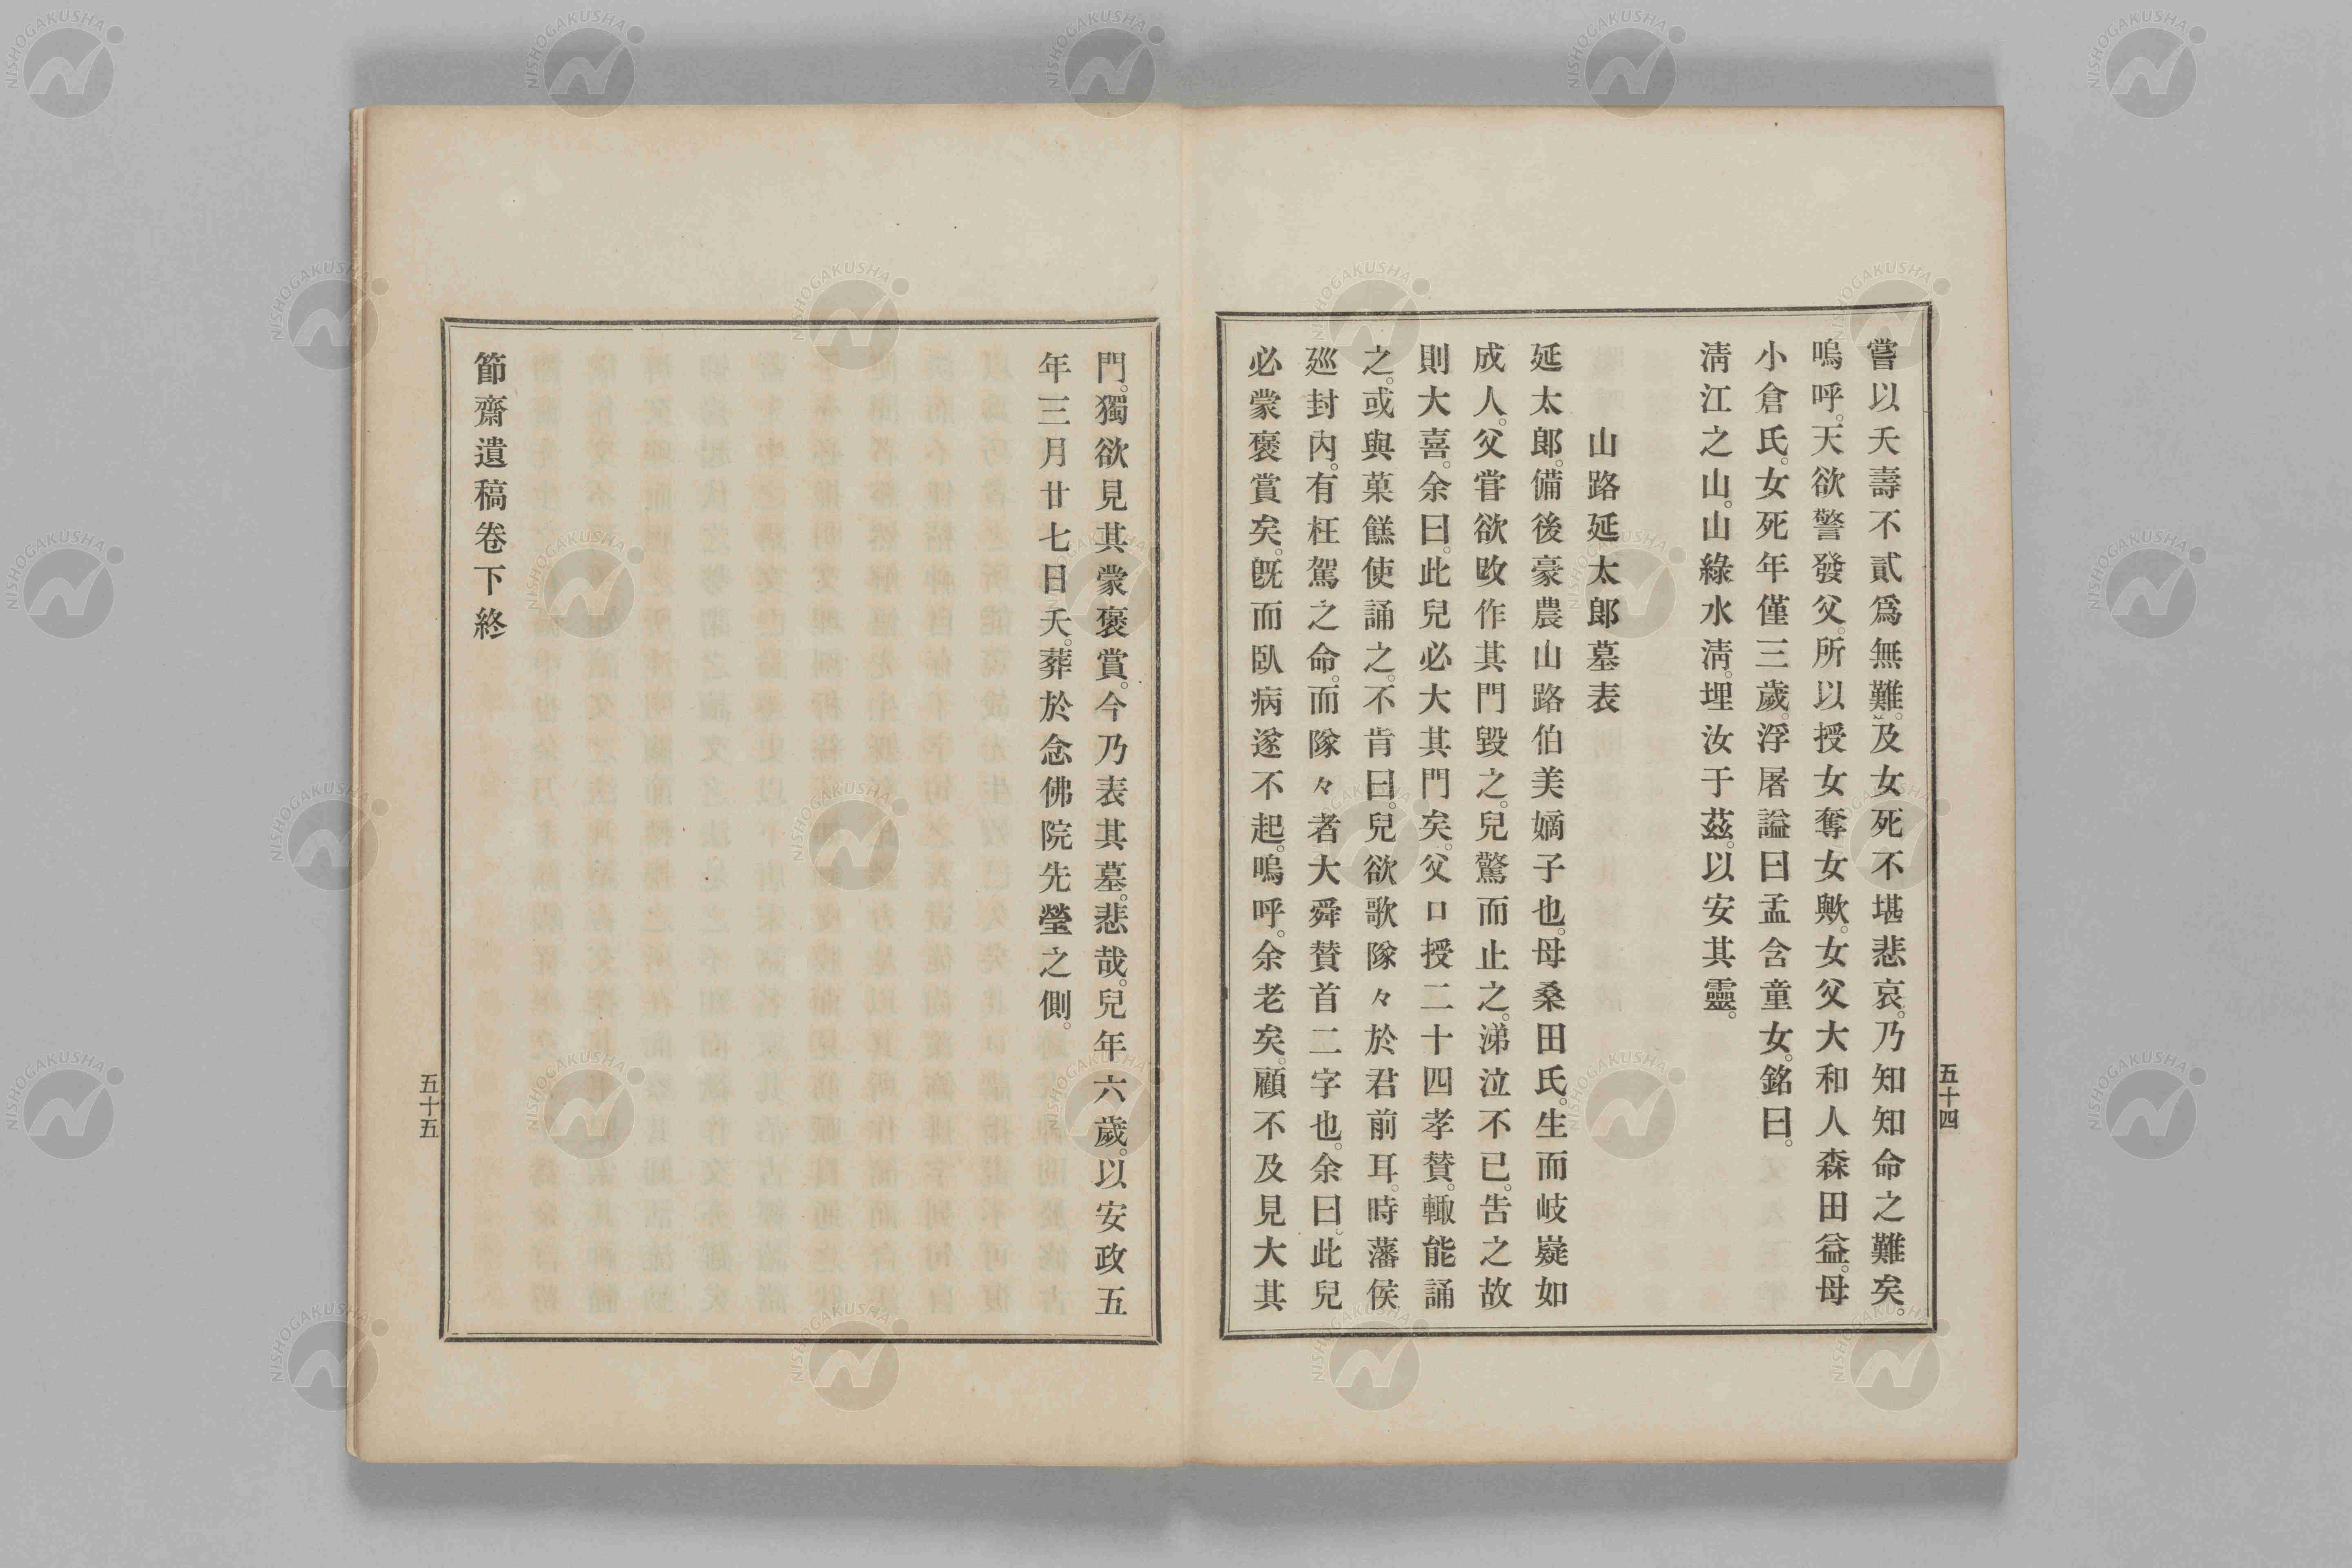 嘗以夭壽不貳爲無難。及女死不堪悲哀。乃知知命之難矣。
嗚呼。天欲警發父。所以授女奪女歟。女父大和人森田益。母
小倉氏。女死年僅三歲。浮屠謚曰孟含童女。銘曰。
淸江之山。山綠水淸。埋汝于茲。以安其靈。
山路延太郞墓表
延太郞。備後豪農山路伯美嫡子也。母桑田氏。生而岐嶷如
成人。父甞欲改作其門毀之。兒驚而止之。涕泣不已。吿之故
則大喜。余曰。此兒必大其門矣。父口授二十四孝賛。輙能誦
之。或與菓餻使誦之。不肯曰。兒欲歌隊々於君前耳。時藩侯
廵封內。有枉駕之命。而隊々者大舜賛首二字也。余曰。此兒
必蒙褒賞矣。旣而臥病遂不起。嗚呼。余老矣。顧不及見大其
五十四
門。獨欲見其蒙褒賞。今乃表其墓。悲哉。兒年六歲。以安政五
年三月廿七日夭。葬於念佛院先瑩之側。
節齋遺稿卷下終
五十五
NISHOGAKUSHA